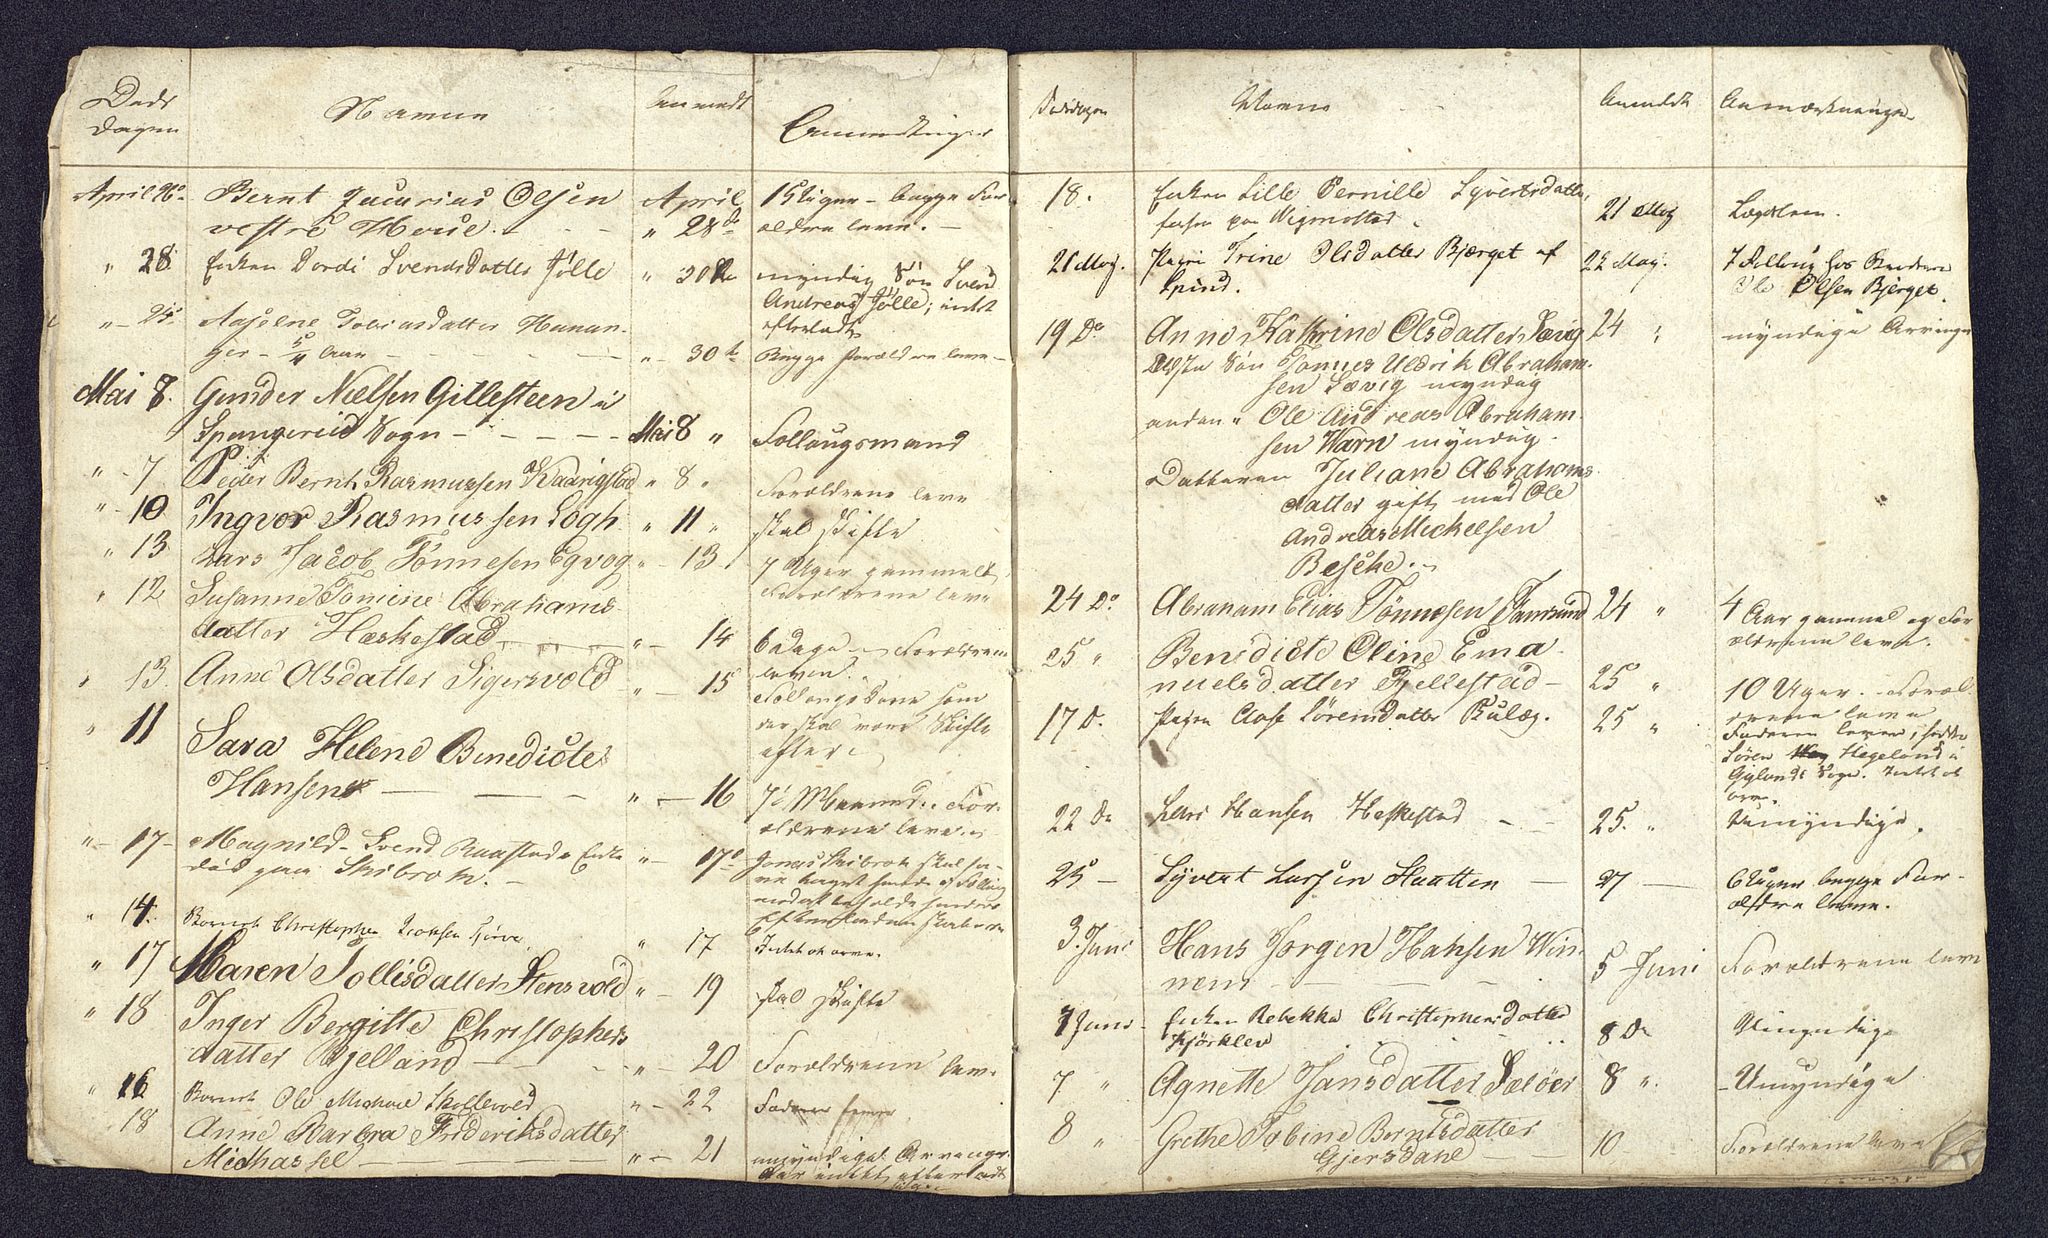 Døds
dagen
Navne
Anmeldt
Anmerkninger
April 26.
Bernt Zacarias Olsen
vestre Houe.
April
" 28de
15 Uger - begge For
ældre leve.
" 28.
Enken Dordi Svendsdatter Jölle
" 30te
myndig Søn Svend
Andreas Jölle; intet
efterladt
" 25.
Aaselene Tobiasdatter Hunan-
ger - 5/4 Aar
" 30te
Begge Forældre leve
Mai 8.
Gunder Nielsen Gillesteen i
Spangereid Sogn
Mai 8 "
Føllaugsmand
" 7
Peder Bernt Rasmussen Kaarigstad
" 8 "
Forældrene leve
" 10
Ingvor Rasmussen Lögh
" 11 "
skal skifte
" 13
Lars Jacob Tönnesen Egvog
" 13
7 Uger gammel,
Forældrene leve
" 12
Susanne Tomine Abrahams
datter Hæskestad
" 14
6 Dage - Forældrene
lever.
" 13
Anne Olsdatter Sigersvold
" 15
Føllougskone som
der skal være Skifte
efter
" 11
Sara Helene Benedicte
Hansen
" 16
7 Maaned. For-
ældrene leve.
" 17
Magnild Svend Raastads Enke
död paa Skibrok.
" 17
Jonas Skibrok skal ha-
ve taget hende i Følling
mod at beholde hendes
Efterladenskaber
" 14.
Barnet Christopher
" 17
Intet at arve.
" 17
Maren Tollisdatter Stensvold
" 19
skal skifte
" 18
Inger Bergitte Christophers
datter Bjelland
" 20
Forældrene leve
" 16
Barnet Ole Michael Skollevold
" 22
Faderen
18
Anne Barbra Frideriksdatter
Midhassel
" 21
myndige Arvinger
har intet efterladt
Dødsdagen
Navne
Anmeldt
Anmærkninger
18.
Enken Lille Pernille Syvertsdatter,
paa Vigmostad
21 Maj
Lægdslem.
21 Maj.
Pigen Trine Olsdatter Bjærget af
Spind.
22 Maj.
I Følloug hos Broderen
Ole Olsen Bjerget.
19 Do
Anne Kathrine Olsdatter Sævig
24 "
myndige Arvinger
Ældste Søn Tönnes Uldrik Abraham-
sen Sævig myndig
anden " Ole Andreas Abraham-
sen Warn myndig.
Datteren Juliane Abrahams-
datter gift med Ole
Andreas Mickelsen
Beséke.
24 Do
Abraham Elias Tönnesen
24 "
4 Aar gammel og For
ældrene leve.
25 "
Benedicte Oline Ema-
nuelsdatter Fjellestad
25 "
10 Uger. Foræl-
drene leve
17 D.
Pigen Aase Sörensdatter Rulæg.
25 "
Faderen lever; hedder
Sören Hegeland i
Gylands Sogn. Intet at
arve.
22 Do
Lars Hansen Heskestad
25. "
Umyndige.
25
Syvert Larsen Haatten
27
6 Uger begge For-
ældre leve.
3. Juni
Hans Jørgen Hansen Win-
nem
5 Juni
Forældrene leve
7 Juni
Enken Rebekka Christophersdatter
Kjörklev
8 Do
Umyndige
7 "
Agnette Jansdatter Sælöer
8 ".
Umyndige
8 "
Grethe Tobine Berntsdatter
Gjersdahl
10
Forældrene leve